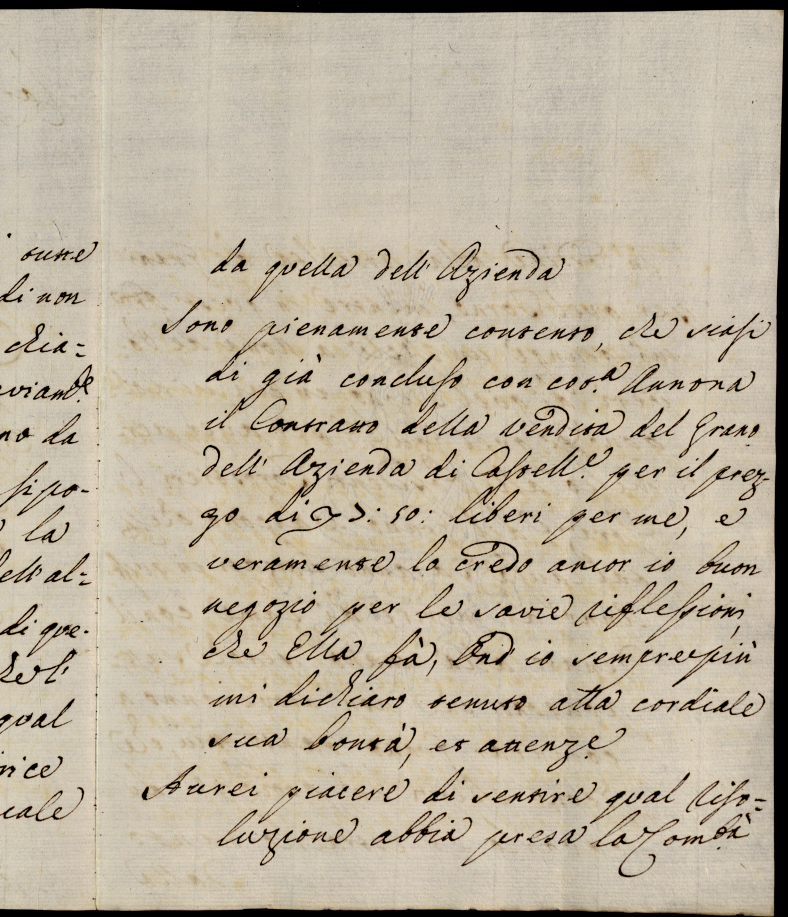 tutte
di non
chia=
no da
si po-
la
dell'al=
di que-
che l'
qual
da quella dell' Azienda
Sono pienamente contento, che siasi
di già concluso con cot.ª Annona
il Contratto della vendita del Grano
dell' Azienda di Castell.º per il prez-
zo di 50: liberi per me, e
veramente lo credo ancor io buon
negozio per le savie riflessioni,
che Ella fà, Ond' io semprepiù
mi dichiaro tenuto alla cordiale
sua bontà, et attenz.e
Aurei piacere di sentire qual riso=
luzione abbia presa la Com.tà